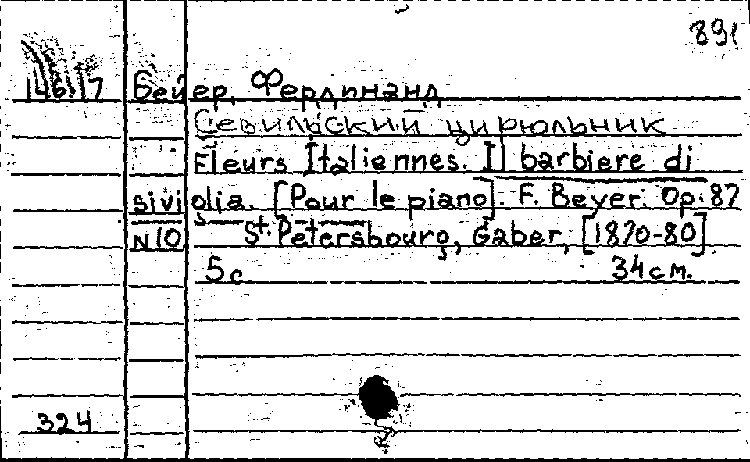 891
146.17 Бейер, Фердинанд
Севильский цирюльник
Fleurs Italiennes. Il barbiere di
siviglia. [Pour le piano]. F. Beyer. Op. 87
N 10 St. Petersbourg, Gaber, [1870-80]
5 с 34 см.
324